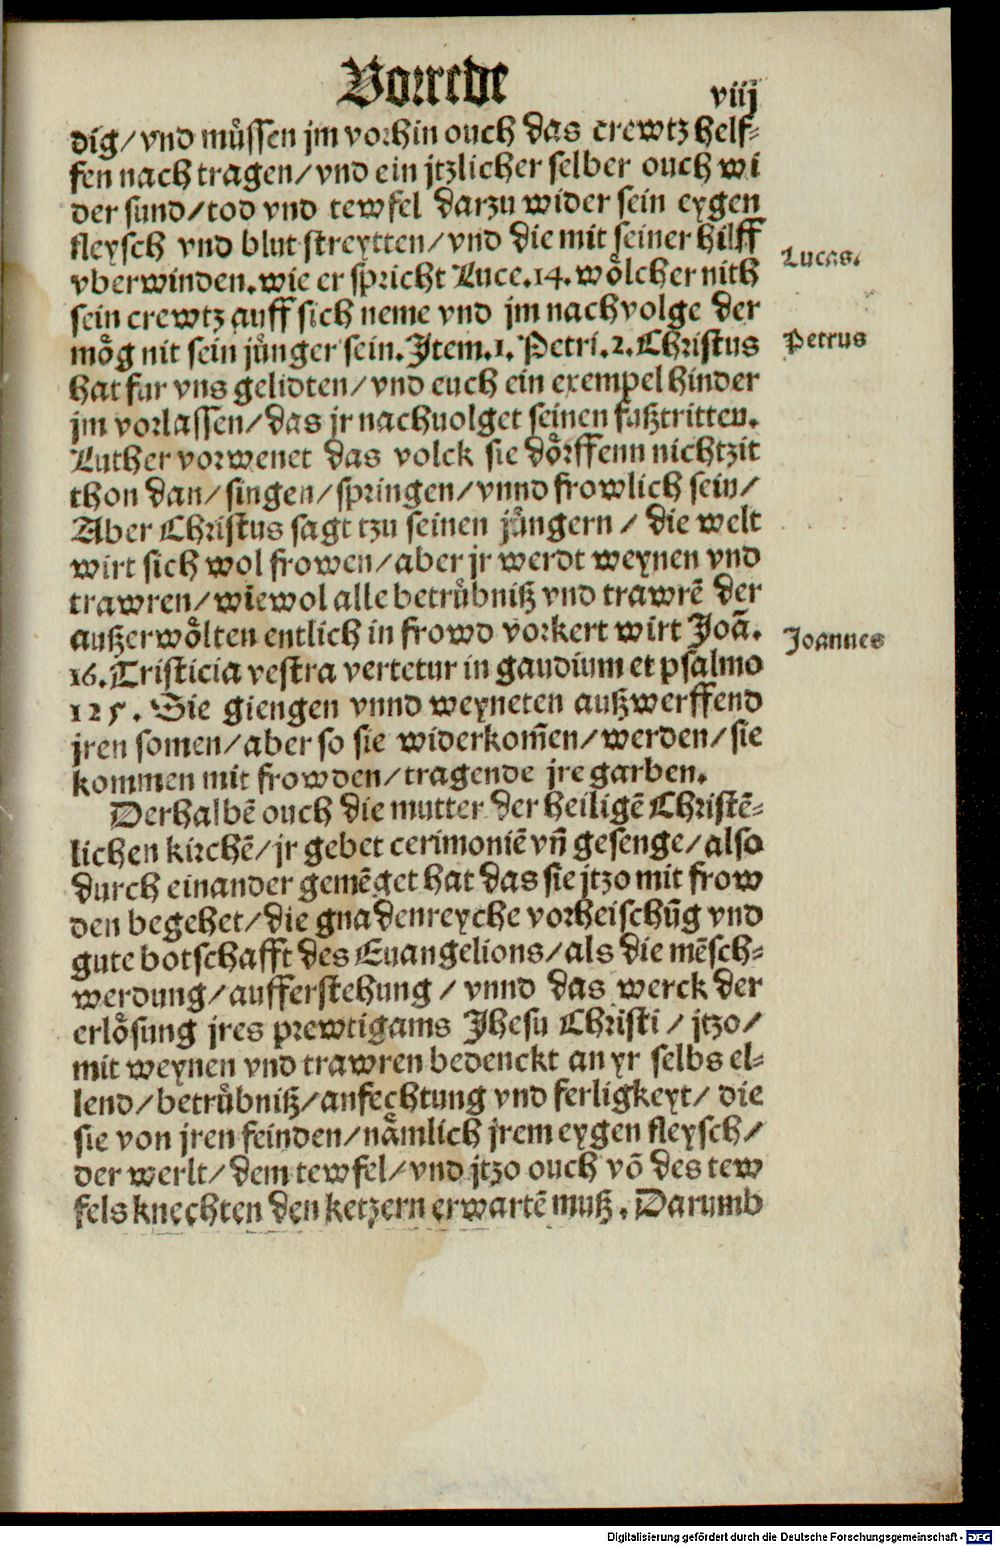 Vorrede
viij
dig/ vnd müssen jm vorhin ouch das crewtz helf⸗
fen nach tragen/ vnd ein jtzlicher selber ouch wi
der sund/ tod vnd tewfel darzu wider sein eygen
fleysch vnd blut streytten/ vnd die mit seiner hilff
vberwinden. wie er spricht Luce. 14. wölcher nith
Lucas.
sein crewtz auff sich neme vnd jm nach volge der
mög nit sein jünger sein. Item. 1. Petri. 2. Christus
Petrus
hat fur vns gelidten/ vnd euch ein exempel hinder
jm vorlassen/ das jr nachuolget seinen fußtritten.
Luther vorwenet das volck sie dörffenn nichtzit
thon dan/ singen/ springen/ vnnd frowlich sein/
Aber Christus sagt tzu seinen jüngern / die welt
wirt sich wol frowen/ aber jr werdt weynen vnd
trawren/ wiewol alle betrübniß vnd trawrē der
außerwölten entlich in frowd vorkert wirt Joā.
Joannes
16. Tristicia vestra vertetur in gaudium et psalmo
125. Sie giengen vnnd weyneten außwerffend
jren somen/ aber so sie widerkom̄en/ werden/ sie
kommen mit frowden/ tragende jre garben.
Derhalbē ouch die mutter der heiligē Christē⸗
lichen kirchē/ jr gebet cerimoniē vn̄ gesenge/ also
durch einander gemēget hat das sie jtzo mit frow
den begehet/ die gnadenreyche vorheischūg vnd
gute botschafft des Euangelions/ als die mēsch⸗
werdung/ aufferstehung / vnnd das werck der
erlösung jres prewtigams Jhesu Christi / jtzo/
mit weynen vnd trawren bedenckt an yr selbs el⸗
lend/ betrübniß/ anfechtung vnd ferligkeyt/ die
sie von jren feinden/ nämlich jrem eygen fleysch/
der werlt/ dem tewfel/ vnd jtzo ouch vō des tew
fels knechten den ketzern erwartē muß. Darumb
Digitalisierung gefördert durch die Deutsche Forschungsgemeinschaft - DFG